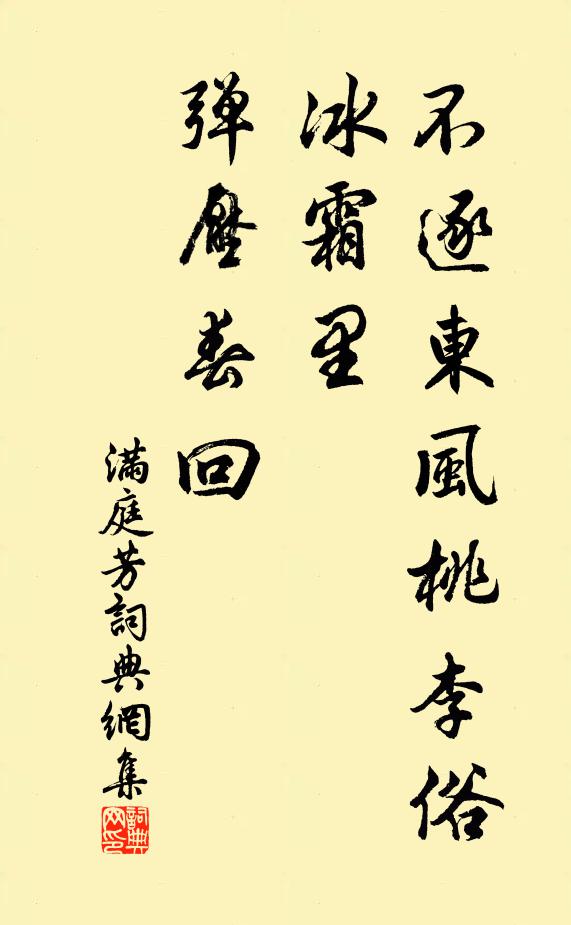 不逐東風桃李俗
冰霜里
弹壓春回
满庭芳詞典網集
詞典网印